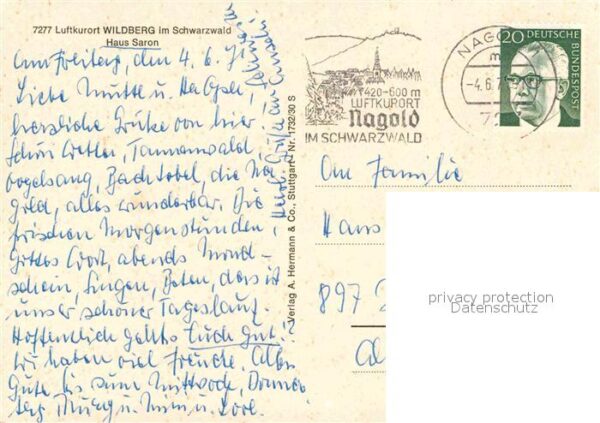 7277 Luftkurort WILDBERG im Schwarzwald
Haus Saron
Am Freitag, den 4. 6. 7
Liebe Mutti u.
herzliche Grüße von hier
Schön Wetter, Tannenwald
Vogelsang, Bach tobel, die Na-
gold, alles wunderbar. Die
frischen Morgenstunden,
Gottes Wort, abends Mond-
schein, Singen, Beten, das ist
unser schöner Tageslauf.
Hoffentlich gehts Euch gut!
Wir haben viel Freude. Alles
Gute bis zum Mittwoch, Donners
tag
Verlag A. Hermann & Co., Stuttgart · Nr. 1732/30 S
420-600 m
LUFTKURORT
Nagold
IM SCHWARZWALD
NAGO
m
-4.6.7
72
20 DEUTSCHE
BUNDESPOST
An Familie
Hans
897
privacy protection
Datenschutz